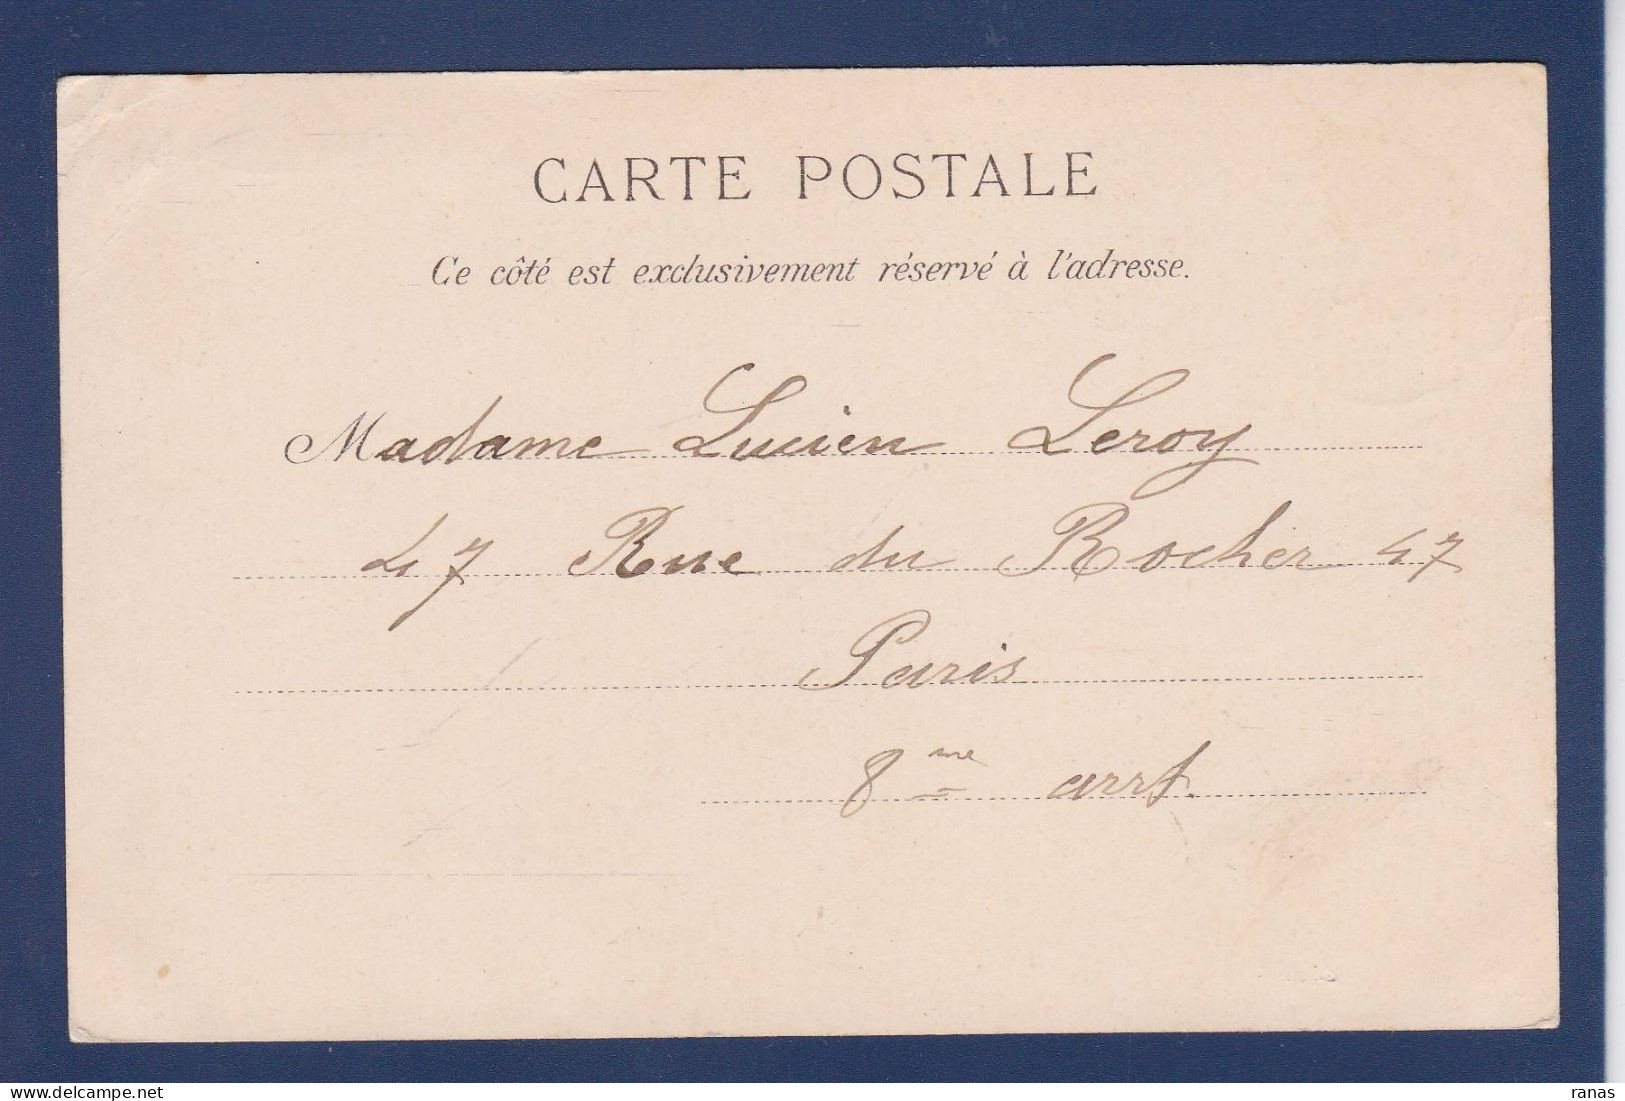 CARTE POSTALE
Ce côté est exclusivement réservé à l'adresse.
Madame Lucien Leroy
47 Rue du Rocher 47
Paris
8me arrt.
ranas